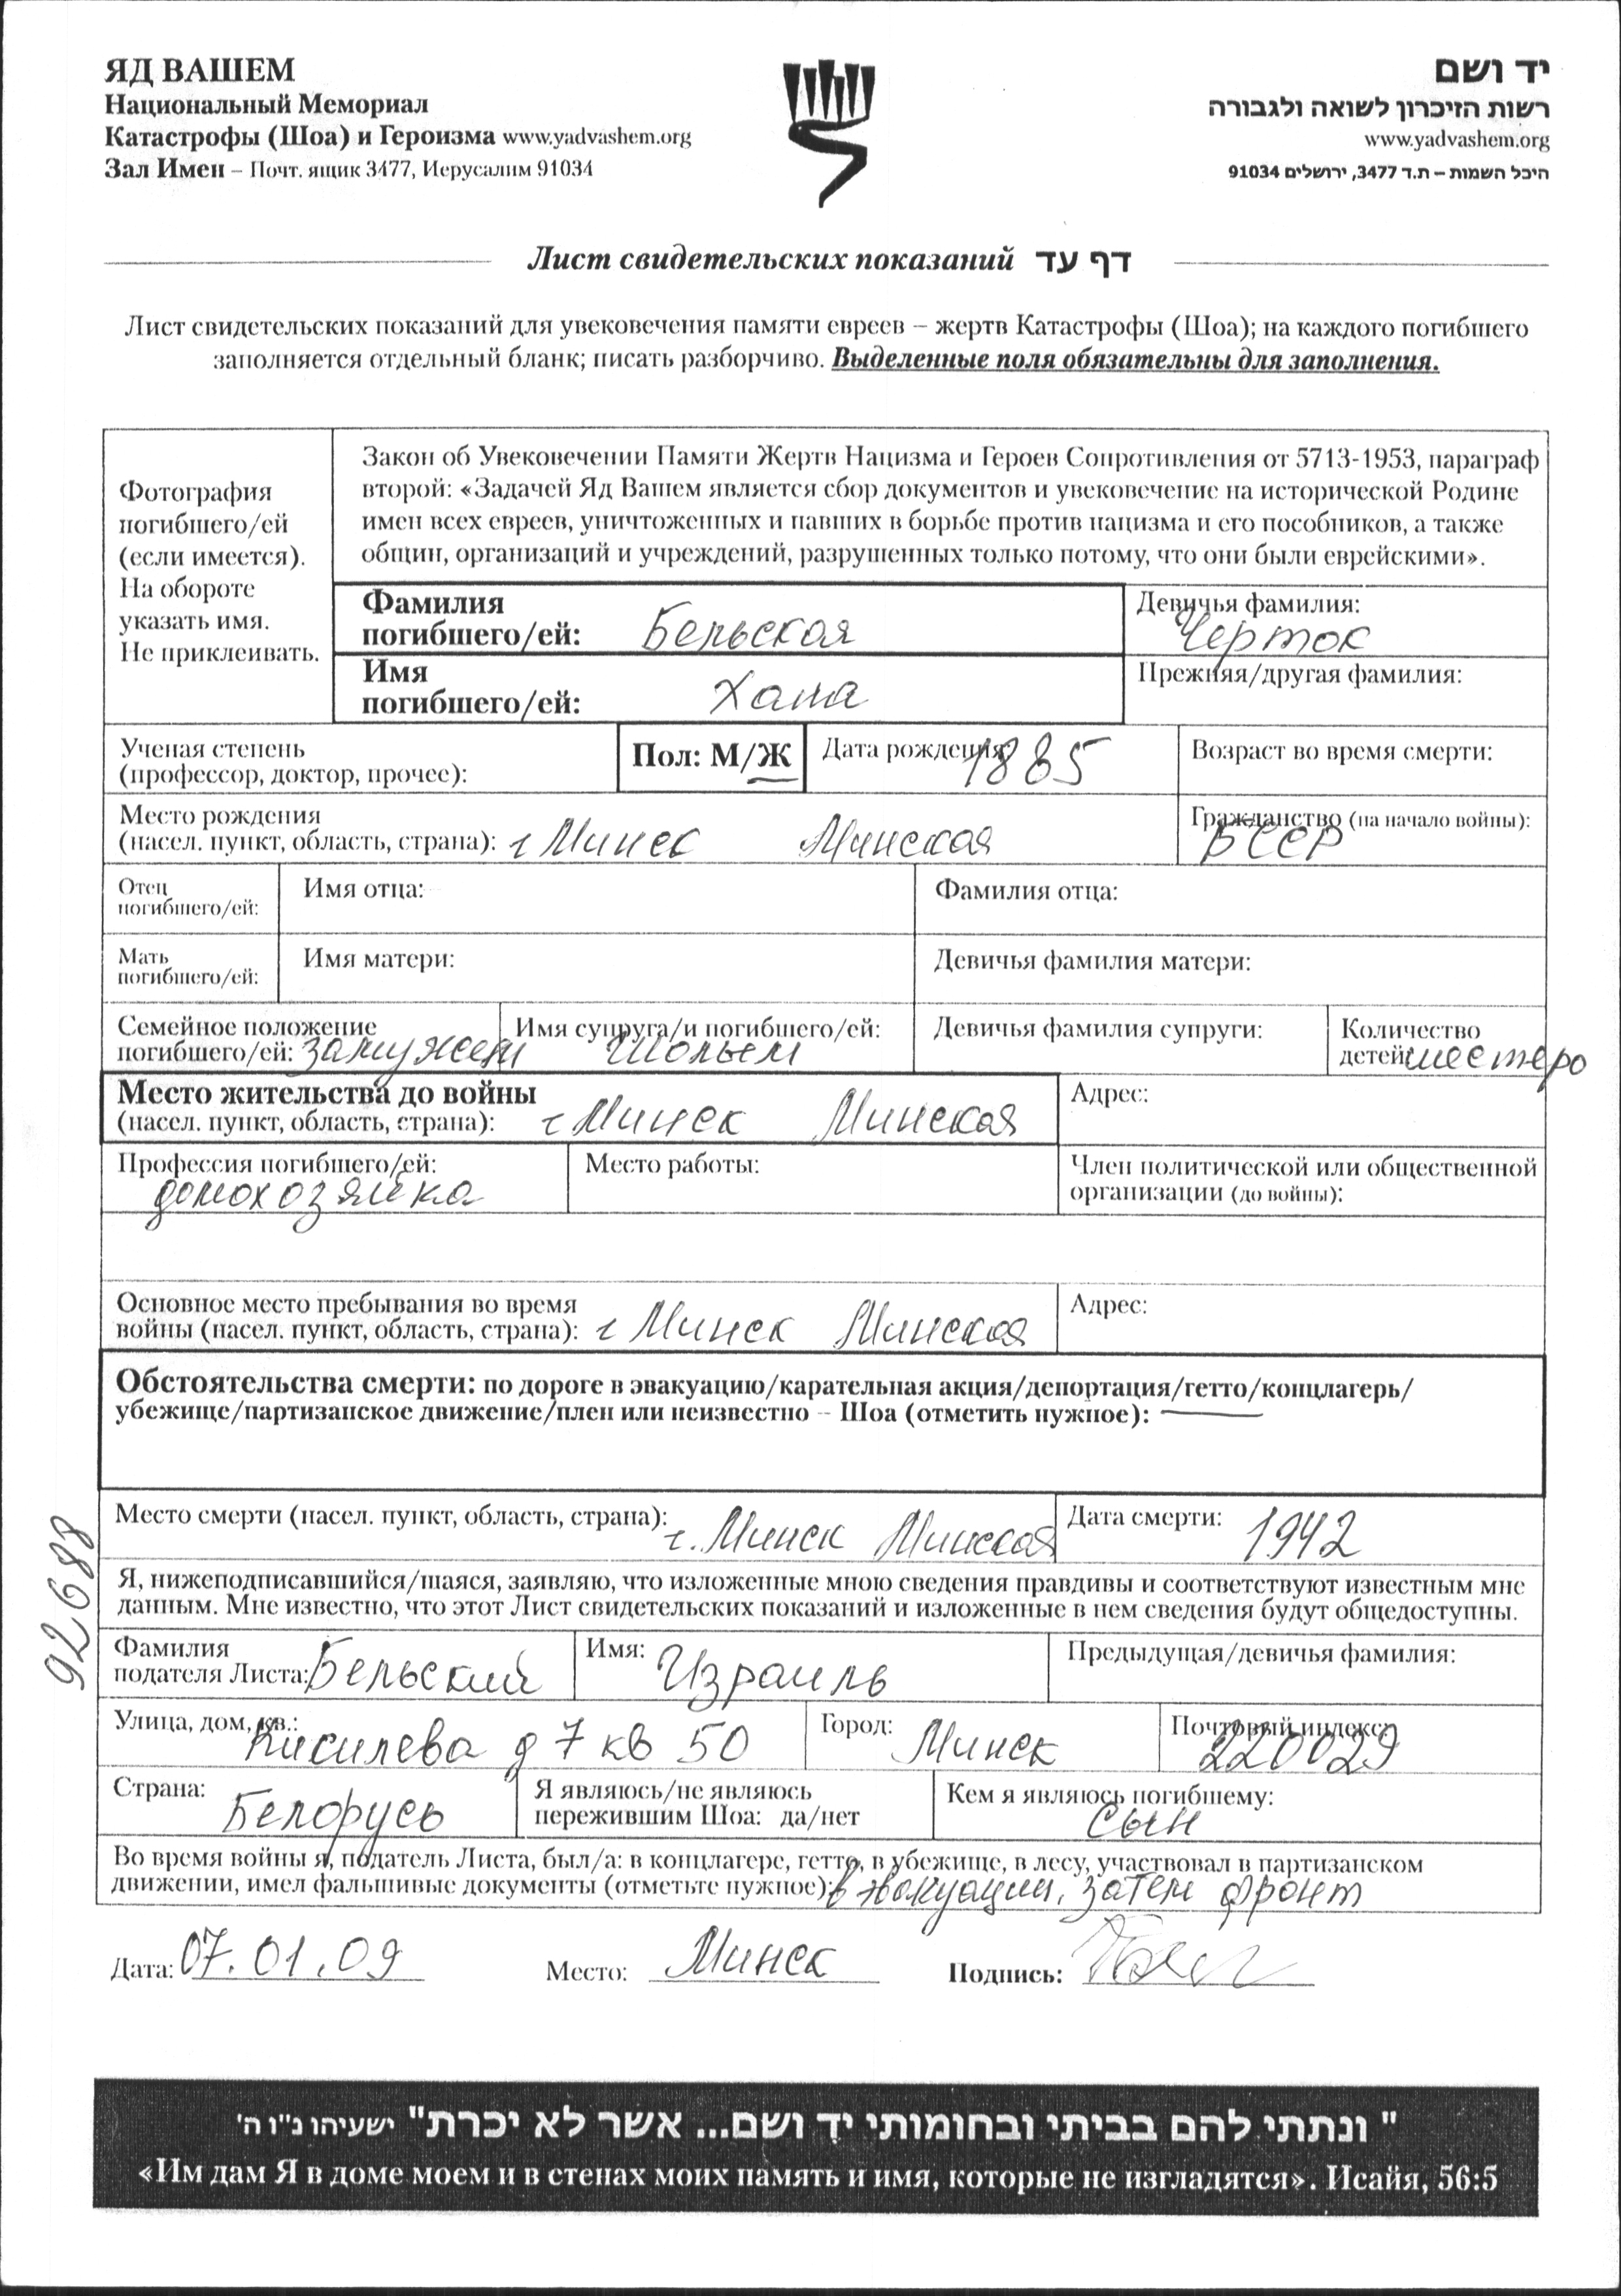 ЯД ВАШЕМ
Национальный Мемориал
Катастрофы (Шоа) и Героизма www.yadvashem.org
Зал Имен – Почт. ящик 3477, Иерусалим 91034
יד ושם
רשות הזיכרון לשואה ולגבורה
www.yadvashem.org
היכל השמות – ת.ד 3477, ירושלים 91034
Лист свидетельских показаний דף עד
Лист свидетельских показаний для увековечения памяти евреев – жертв Катастрофы (Шоа); на каждого погибшего
заполняется отдельный бланк; писать разборчиво. Выделенные поля обязательны для заполнения.
Фотография
погибшего/ей
(если имеется).
На обороте
указать имя.
Не приклеивать.
Закон об Увековечении Памяти Жертв Нацизма и Героев Сопротивления от 5713-1953, параграф
второй: «Задачей Яд Вашем является сбор документов и увековечение на исторической Родине
имен всех евреев, уничтоженных и павших в борьбе против нацизма и его пособников, а также
общин, организаций и учреждений, разрушенных только потому, что они были еврейскими».
Фамилия
погибшего/ей: Бельская
Девичья фамилия:
Черток
Имя
погибшего/ей: Хана
Прежняя/другая фамилия:
Ученая степень
(профессор, доктор, прочее):
Пол: М/Ж
Дата рождения: 1885
Возраст во время смерти:
Место рождения
(насел. пункт, область, страна): г Минск Минская
Гражданство (на начало войны):
БССР
Отец
погибшего/ей:
Имя отца:
Фамилия отца:
Мать
погибшего/ей:
Имя матери:
Девичья фамилия матери:
Семейное положение
погибшего/ей: замужем
Имя супруга/и погибшего/ей:
Шольем
Девичья фамилия супруги:
Количество
детей: шестеро
Место жительства до войны
(насел. пункт, область, страна): г Минск Минская
Адрес:
Профессия погибшего/ей:
домохозяйка
Место работы:
Член политической или общественной
организации (до войны):
Основное место пребывания во время
войны (насел. пункт, область, страна): г Минск Минская
Адрес:
Обстоятельства смерти: по дороге в эвакуацию/карательная акция/депортация/гетто/концлагерь/
убежище/партизанское движение/плен или неизвестно – Шоа (отметить нужное):
Место смерти (насел. пункт, область, страна): г. Минск Минская
Дата смерти: 1942
Я, нижеподписавшийся/шаяся, заявляю, что изложенные мною сведения правдивы и соответствуют известным мне
данным. Мне известно, что этот Лист свидетельских показаний и изложенные в нем сведения будут общедоступны.
Фамилия
подателя Листа: Бельский
Имя: Израиль
Предыдущая/девичья фамилия:
Улица, дом, кв.:
Кисилева д 7 кв 50
Город: Минск
Почтовый индекс:
220029
Страна: Белорусь
Я являюсь/не являюсь
пережившим Шоа: да/нет
Кем я являюсь погибшему:
сын
Во время войны я, податель Листа, был/а: в концлагере, гетто, в убежище, в лесу, участвовал в партизанском
движении, имел фальшивые документы (отметьте нужное): в эвакуации, затем фронт
Дата: 07.01.09 Место: Минск Подпись:
92688
" ונתתי להם בביתי ובחומותי יד ושם... אשר לא יכרת" ישעיהו נ"ו ה'
«Им дам Я в доме моем и в стенах моих память и имя, которые не изгладятся». Исайя, 56:5